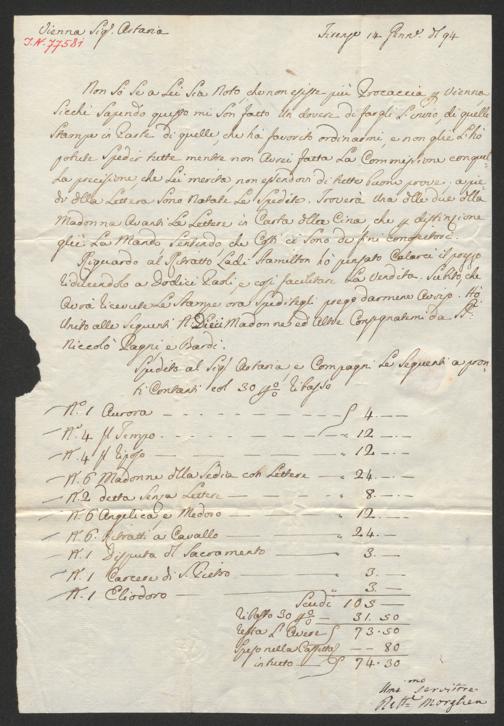 Vienna Sigʳ. Astaria
Firenze 14 Genn. 94
I.N. 77581
Non so se a Lei sia noto, che non esiste più Procaccia p Vienna
Sicchè sapendo questo mi son fatto un dovere di fargli l'invio, di quelle
Stampe in parte di quelle, che ha favorito ordinarmi, e non glie l'hò
potute spedir tutte mentre non avrei fatta la Commissione con quel
La precisione, che lei merita, non essendovi di tutte buone prove. a pie
di della Lettera sono notate le spedite. Troverà una delle due della
Madonna avanti la Lettere in Carta della Cina che p distinzione
glie la mando sentendo che Costì ci sono de fini conoscitori.
Riguardo al Ritratto Ladi Hamilton hò pensato calarci il prezzo
riducendolo a dodici Paoli e così facilitare la vendita. Subito, che
avrà ricevute le stampe ora speditegli prego darmene avviso. Hò
Unito alle seguenti Nº Dieci Madonne ed altre Consegnatemi da Sʳ.
Niccolò Pagni e Bardi.
Spedito al Sigʳ Astaria e Compagni le seguenti a pron
ti Contanti col 30 p % ribasso
Nº. 1 Aurora 4.
Nº. 4 Il Tempo 12
Nº. 4 Il Riposo 12.
Nº. 6 Madonne della Sedia con Lettere 24
Nº. 2 dette senza Lettere 8.
Nº. 6 Angelica e Medoro 12
Nº. 6. ritratti a Cavallo 24.
Nº. 1 Disputa del Sacramento 3.
Nº. 1 Carcere di S. Pietro 3.
Nº. 1 Eliodoro 3.
Scudi 105
ribasso 30 p % 31.50
resta l'avere 73.50
Speso nella Cassetta 80
in tutto 74.30
Umᵐᵒ servitore
Raffˡᵉ Morghen